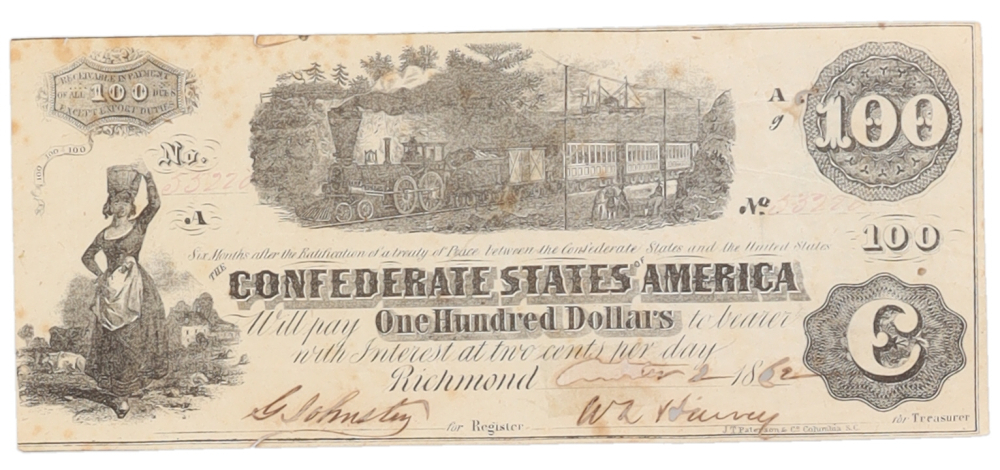 RECEIVABLE IN PAYMENT
OF ALL 100 DUES
EXCEPT EXPORT DUTIES
100 100 100
No.
A
A
g
100
No.
100
Six Months after the Ratification of a treaty of Peace between the Confederate States and the United States
THE CONFEDERATE STATES OF AMERICA
Will pay One Hundred Dollars to bearer
with Interest at two cents per day
Richmond 2 1862
C
G Johnston for Register
for Treasurer
J.T. Paterson & Co Columbia S.C.